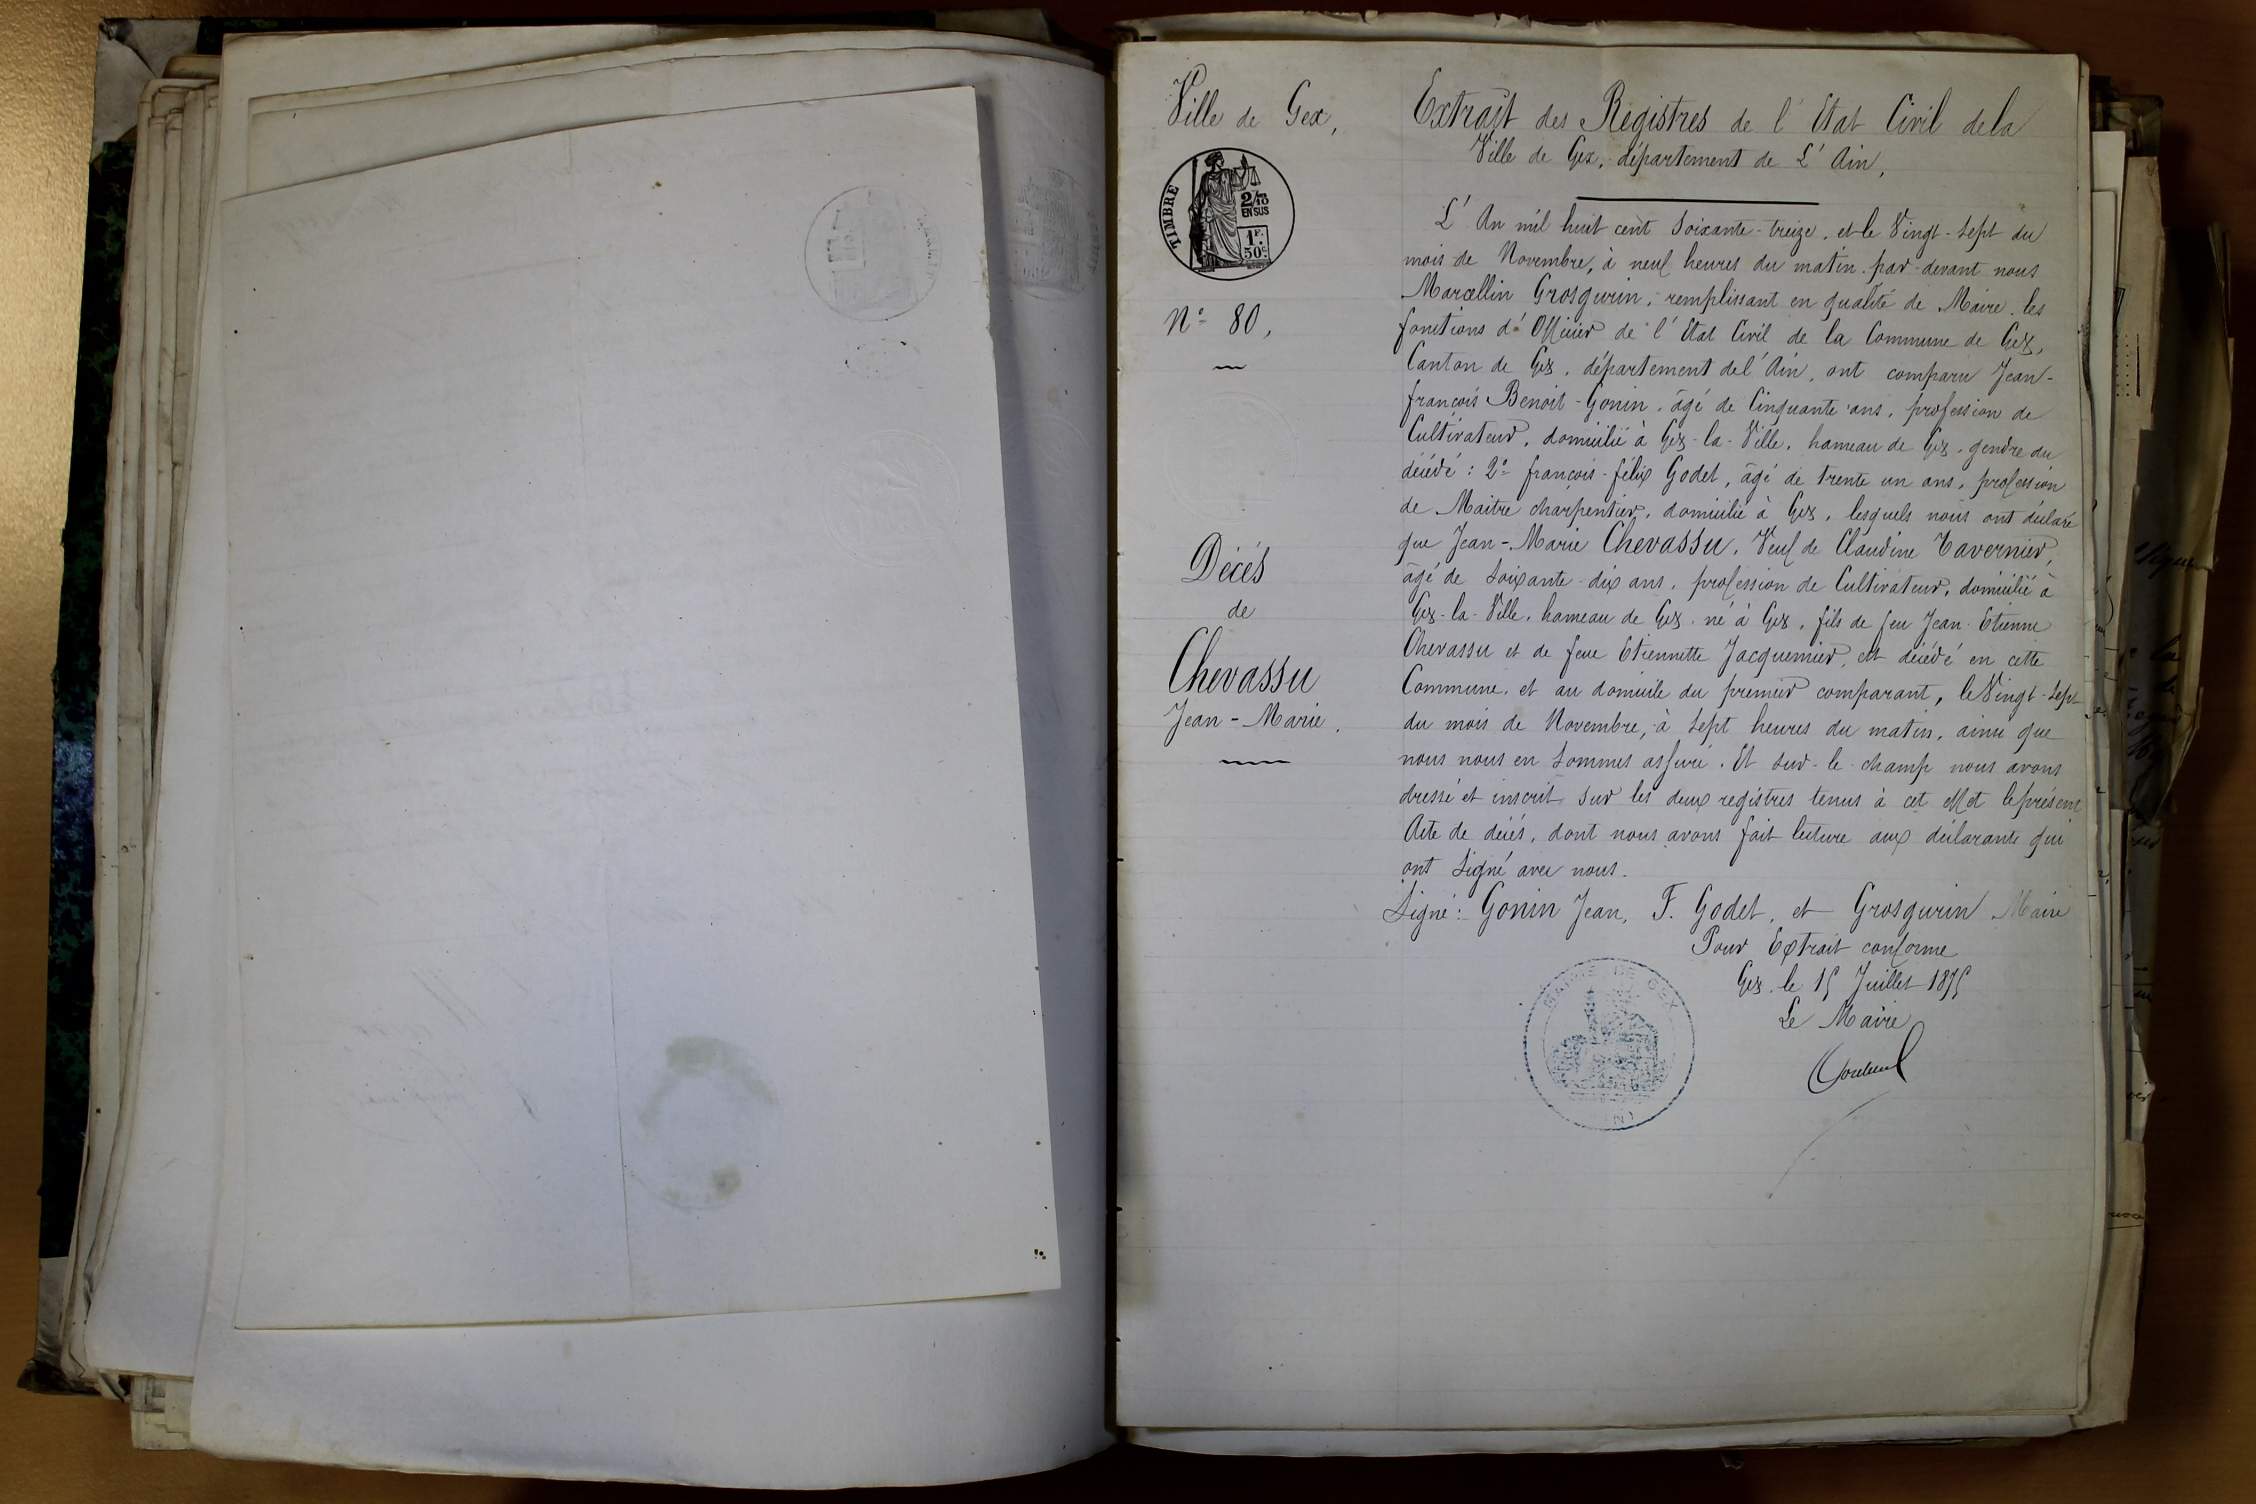 Ville de Gex,
TIMBRE
2/10
EN SUS
1F.
50c.
N° 80,
Décès
de
Chevassu
Jean-Marie.
Extrait des Registres de l'Etat Civil de la
Ville de Gex, département de L'Ain,
L'An mil huit cent soixante-treize, et le Vingt-sept du
mois de Novembre, à neuf heures du matin, par-devant nous
Marcellin Grosgurin, remplissant en qualité de Maire les
fonctions d'Officier de l'Etat Civil de la Commune de Gex,
Canton de Gex, département de l'Ain, ont comparu Jean-
françois Benoit-Gonin, âgé de Cinquante ans, profession de
Cultivateur, domicilié à Gex-la-Ville, hameau de Gex, gendre du
décédé : 2° françois-félix Godet, âgé de trente un ans, profession
de Maitre charpentier, domicilié à Gex, lesquels nous ont déclaré
que Jean-Marie Chevassu, Veuf de Claudine Tavernier,
âgé de soixante-dix ans, profession de Cultivateur, domicilié à
Gex-la-Ville, hameau de Gex, né à Gex, fils de feu Jean-Etienne
Chevassu et de feue Etiennette Jacquemier, est décédé en cette
Commune, et au domicile du premier comparant, le Vingt-sept
du mois de Novembre, à sept heures du matin, ainsi que
nous nous en sommes assuré. Et sur-le-champ nous avons
dressé et inscrit sur les deux registres tenus à cet effet le présent
Acte de décés, dont nous avons fait lecture aux déclarants qui
ont signé avec nous.
Signé : Gonin Jean, F. Godet, et Grosgurin Maire
Pour Extrait conforme
Gex, le 15 Juillet 1875
Le Maire
MAIRIE DE GEX